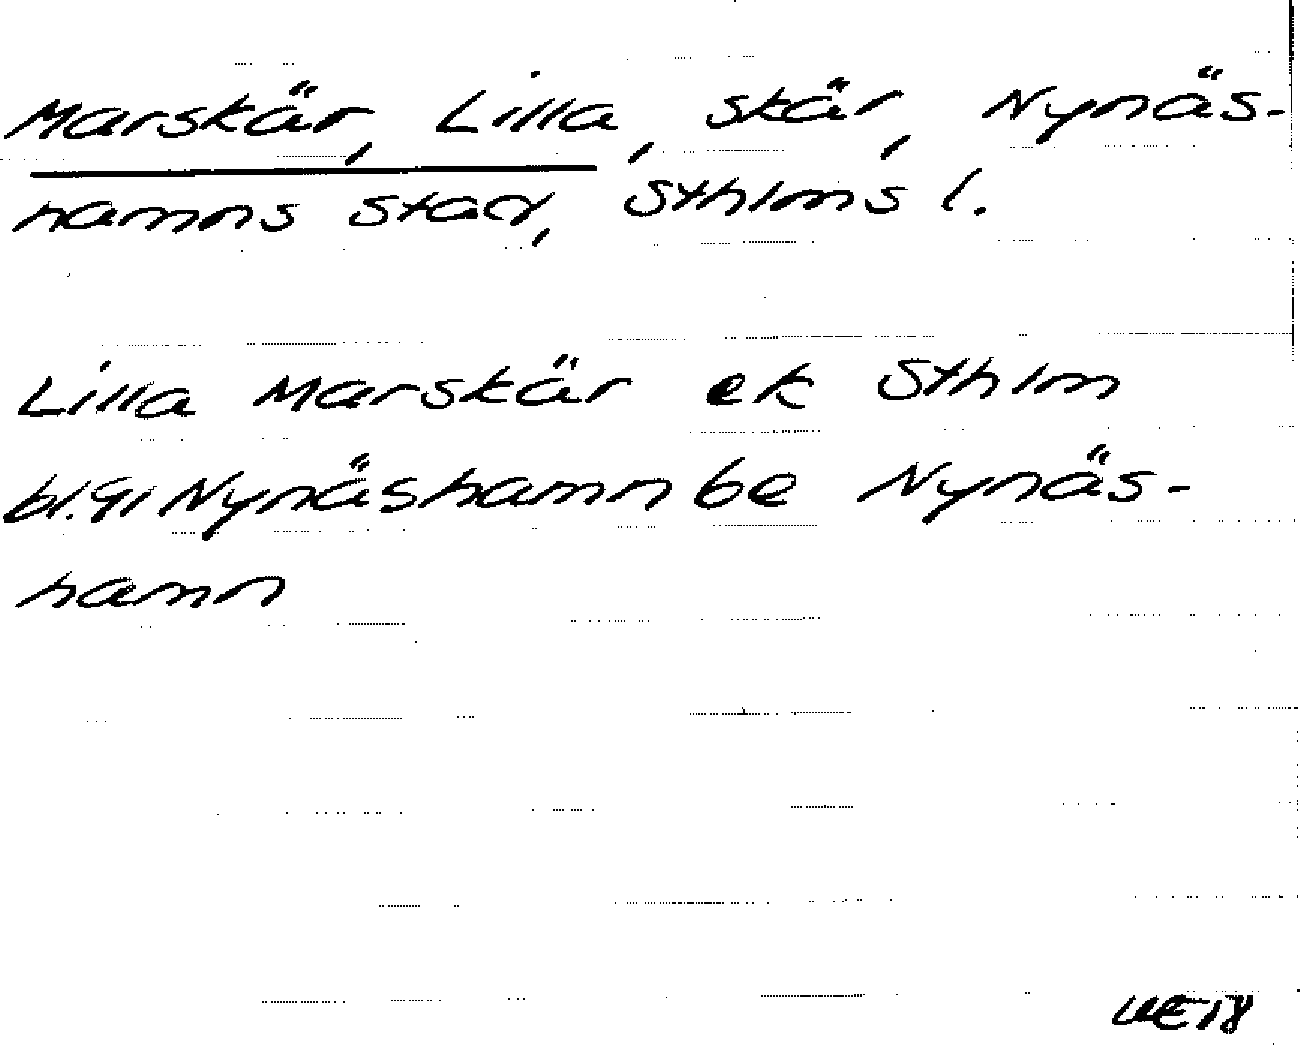 Marskär, Lilla, skär, Nynäs-
hamns stad, Sthlms l.
Lilla Marskär ek Sthlm
bl. 91 Nynäshamn be Nynäs-
hamn